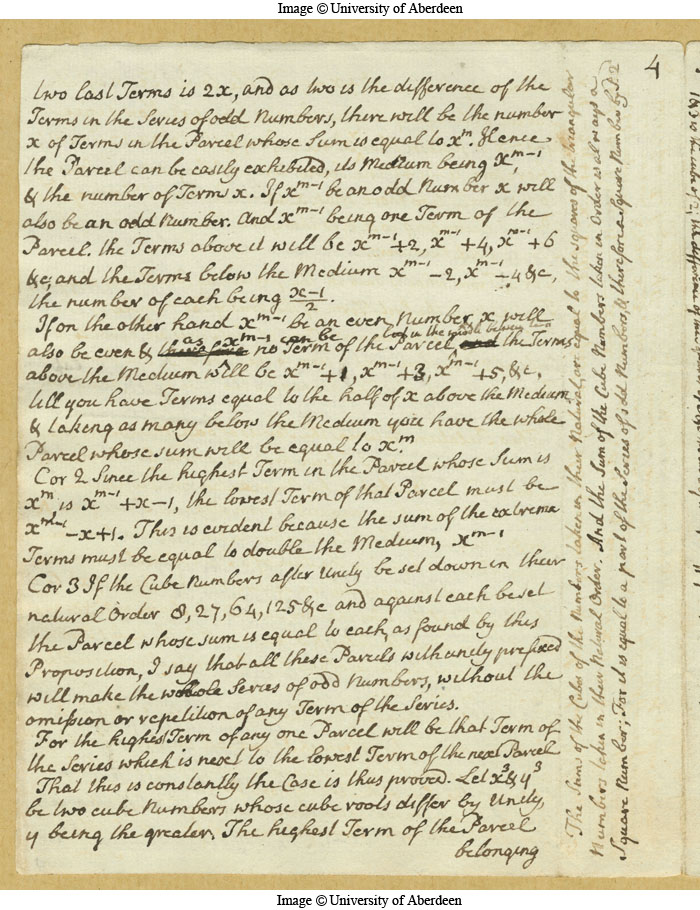 Image © University of Aberdeen
4
two last Terms is 2x, and as two is the difference of the
Terms in the Series of odd Numbers, there will be the number
x of Terms in the Parcel whose Sum is equal to xᵐ. Hence
the Parcel can be easily exhibited, its Medium being xᵐ⁻¹,
& the number of Terms x. If xᵐ⁻¹ be an odd Number x will
also be an odd Number. And xᵐ⁻¹ being one Term of the
Parcel. the Terms above it will be xᵐ⁻¹+2, xᵐ⁻¹+4, xᵐ⁻¹+6
&c, and the Terms below the Medium xᵐ⁻¹-2, xᵐ⁻¹-4 &c,
the number of each being (x-1)/2.
If on the other hand xᵐ⁻¹ be an even Number, x will
also be even & as xᵐ⁻¹ can be no Term of the Parcel but in the middle between two the Terms
above the Medium will be xᵐ⁻¹+1, xᵐ⁻¹+3, xᵐ⁻¹+5, &c.
till you have Terms equal to the half of x above the Medium
& taking as many below the Medium you have the whole
Parcel whose sum will be equal to xᵐ
Cor 2 Since the highest Term in the Parcel whose Sum is
xᵐ is xᵐ⁻¹+x-1, the lowest Term of that Parcel must be
xᵐ⁻¹-x+1. This is evident because the sum of the extreme
Terms must be equal to double the Medium, xᵐ⁻¹
Cor 3 If the Cube Numbers after Unity be set down in their
natural Order 8, 27, 64, 125 &c and against each be set
the Parcel whose sum is equal to each, as found by this
Proposition, I say that all these Parcels with unity prefixed
will make the whole Series of odd Numbers, without the
omission or repetition of any Term of the Series.
For the highest Term of any one Parcel will be that Term of
the Series which is next to the lowest Term of the next Parcel
That this is constantly the Case is thus proved. Let x³ & y³
be two cube Numbers whose cube roots differ by Unity,
y being the greater. The highest Term of the Parcel
belonging
The Sums of the Cubes of the Numbers taken in their Natural, are equal to the squares of the triangular
Numbers taken in their Natural Order. And the Sum of the Cube Numbers taken in Order is always a
Square Number; For it is equal to a part of the Series of odd Numbers, & therefore a square Number by P. 2
Image © University of Aberdeen